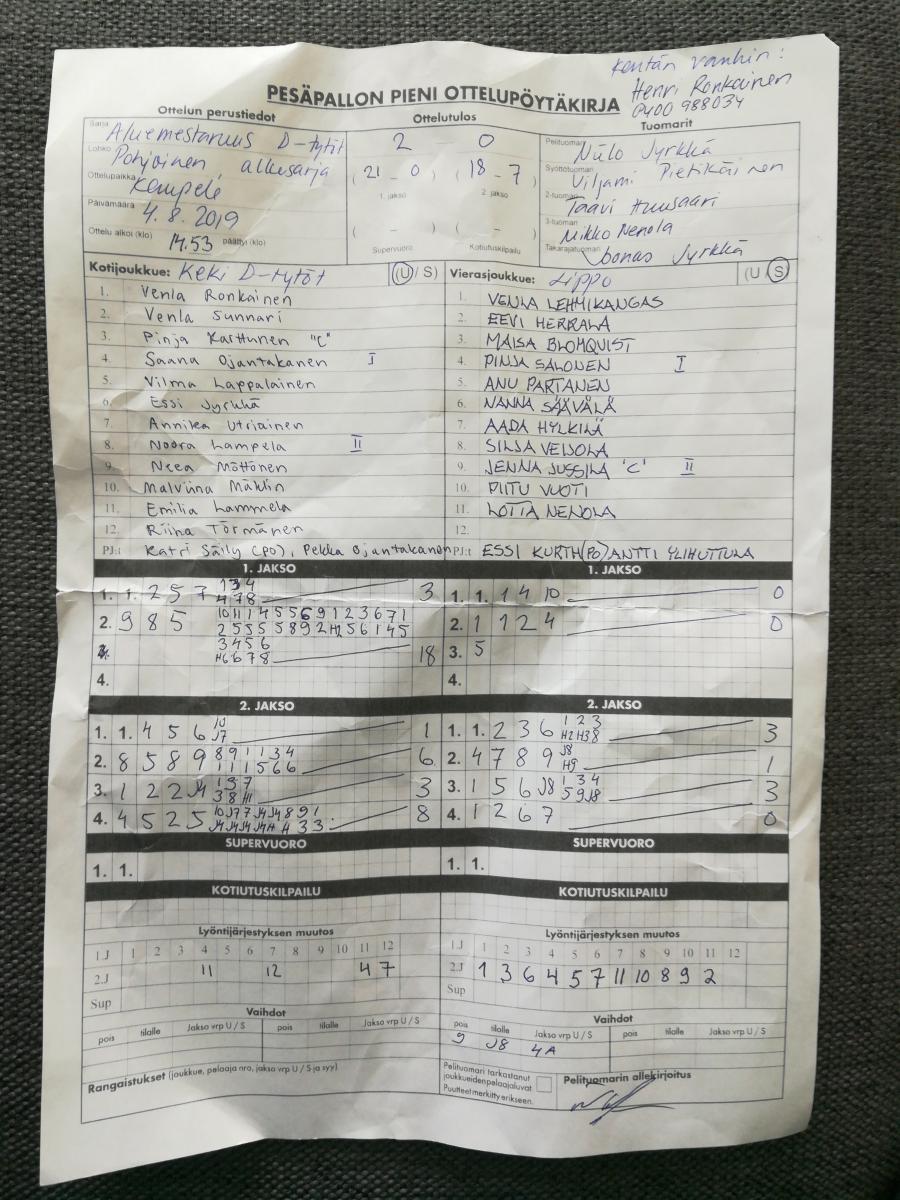 Kentän vanhin:
Henri Ronkainen
0400 988034
PESÄPALLON PIENI OTTELUPÖYTÄKIRJA
Ottelun perustiedot
Ottelutulos
Tuomarit
Sarja Aluemestaruus D-tytöt
Lohko Pohjoinen, alkusarja
Ottelupaikka Kempele
Päivämäärä 4.8.2019
Ottelu alkoi (klo) 14.53 päättyi (klo)
2 - 0
(21 - 0) (18 - 7)
1. jakso 2. jakso
( - ) ( - )
Supervuoro Kotiutuskilpailu
Pelituomari Niilo Jyrkkä
Syöttötuomari Viljami Pietikäinen
2-tuomari Taavi Huusaari
3-tuomari Mikko Nenola
Takarajatuomari Joonas Jyrkkä
Kotijoukkue: Keki D-tytöt (U / S)
1. Venla Ronkainen
2. Venla Sunnari
3. Pinja Karttunen "C"
4. Saana Ojantakanen I
5. Vilma Lappalainen
6. Essi Jyrkkä
7. Annika Utriainen
8. Noora Lampela II
9. Neea Möttönen
10. Malviina Mäklin
11. Emilia Lammela
12. Riina Törmänen
PJ:t Katri Säily (PO), Pekka Ojantakanen
Vierasjoukkue: Lippo (U / S)
1. VENLA LEHMIKANGAS
2. EEVI HERRALA
3. MAISA BLOMQVIST
4. PINJA SALONEN I
5. ANU PARTANEN
6. NANNA SÄÄVÄLÄ
7. AADA HYLKILÄ
8. SILJA VEIJOLA
9. JENNA JUSSILA 'C' II
10. PIITU VUOTI
11. LOTTA NENOLA
12.
PJ:t ESSI KURTH (PO) ANTTI YLIHUTTULA
1. JAKSO
1. 1. 2 5 7 1 3 4 3
4 7 8
2. 9 8 5 10 11 1 4 5 5 6 9 1 2 3 6 7 1
2 5 5 5 5 8 9 2 H2 5 6 1 4 5
3 4 5 6
H6 6 7 8 18
4.
1. JAKSO
1. 1. 1 4 10 0
2. 1 1 2 4 0
3. 5
4.
2. JAKSO
1. 1. 4 5 6 10 1
J7
2. 8 5 8 9 8 9 1 1 3 4 6
1 1 1 5 6 6
3. 1 2 2 J4 1 3 7 3
3 8 H1
4. 4 5 2 5 10 J7 7 J4 J4 8 9 1 8
J4 J4 J4 J4 H 4 3 3
2. JAKSO
1. 1. 2 3 6 1 2 3 3
H2 H3 8
2. 4 7 8 9 J8 1
H9
3. 1 5 6 J8 1 3 4 3
5 9 J8
4. 1 2 6 7 0
SUPERVUORO
1. 1.
SUPERVUORO
1. 1.
KOTIUTUSKILPAILU
KOTIUTUSKILPAILU
Lyöntijärjestyksen muutos
1.J 1 2 3 4 5 6 7 8 9 10 11 12
2.J 11 12 4 7
Sup
Lyöntijärjestyksen muutos
1.J 1 2 3 4 5 6 7 8 9 10 11 12
2.J 1 3 6 4 5 7 11 10 8 9 2
Sup
Vaihdot
pois tilalle Jakso vrp U / S pois tilalle Jakso vrp U / S
Vaihdot
pois tilalle Jakso vrp U / S pois tilalle Jakso vrp U / S
9 J8 4A
Rangaistukset (joukkue, pelaaja nro, jakso vrp U / S ja syy)
Pelituomari tarkastanut
joukkueiden pelaajaluvat
Puutteet merkitty erikseen.
Pelituomarin allekirjoitus